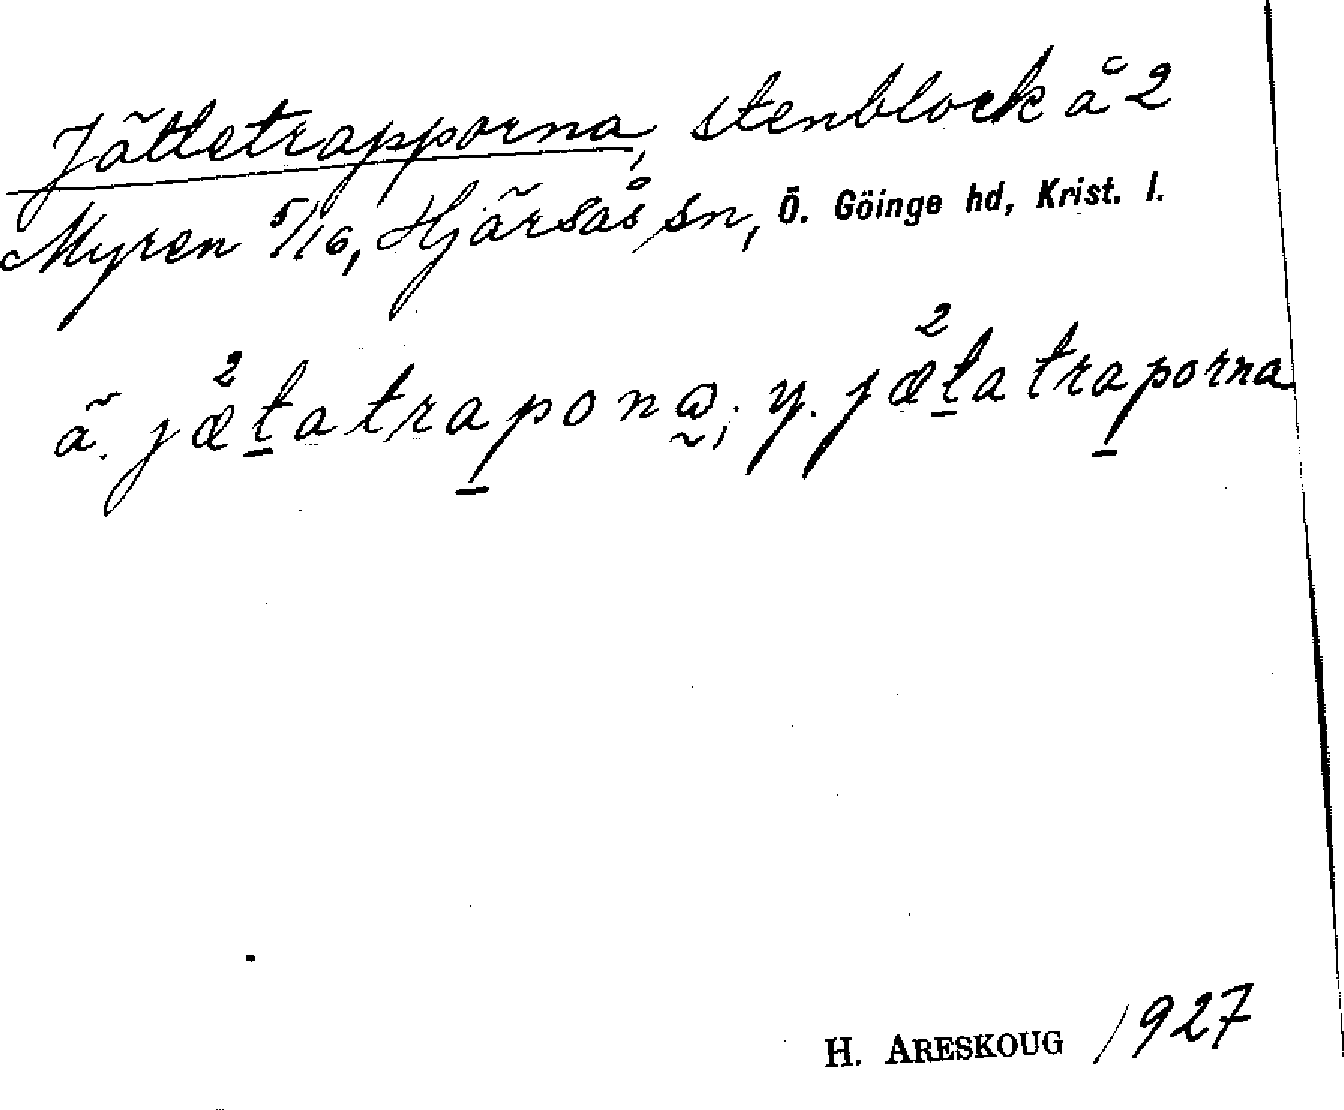 Jättetrapporna, stenblock å 2
Myren 5/16, Hjärsås sn, Ö. Göinge hd, Krist. l.
ä. jæ²tatrapona; y. jæ²tatraporna
H. ARESKOUG 1927